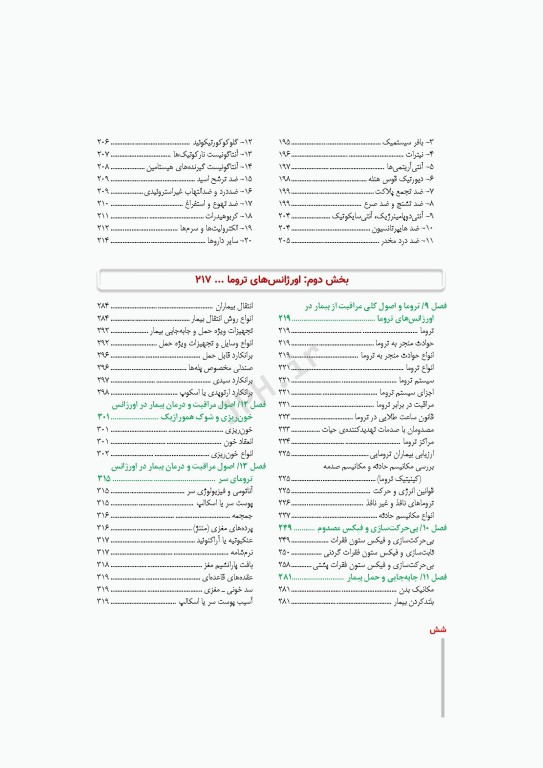 ۳- بافر سیستمیک ........ ۱۹۵
۴- نیترات ........ ۱۹۶
۵- آنتی‌آریتمی‌ها ........ ۱۹۷
۶- دیورتیک قوس هنله ........ ۱۹۸
۷- ضد تجمع پلاکت ........ ۱۹۹
۸- ضد تشنج و ضد صرع ........ ۱۹۹
۹- آنتی‌دوپامینرژیک، آنتی‌سایکوتیک ........ ۲۰۴
۱۰- ضد هایپرتانسیون ........ ۲۰۴
۱۱- ضد درد مخدر ........ ۲۰۵
۱۲- گلوکوکورتیکوئید ........ ۲۰۶
۱۳- آنتاگونیست نارکوتیک‌ها ........ ۲۰۷
۱۴- آنتاگونیست گیرنده‌های هیستامین ........ ۲۰۸
۱۵- ضد ترشح اسید ........ ۲۰۹
۱۶- ضددرد و ضدالتهاب غیراستروئیدی ........ ۲۰۹
۱۷- ضد تهوع و استفراغ ........ ۲۱۰
۱۸- کربوهیدرات ........ ۲۱۱
۱۹- الکترولیت‌ها و سرم‌ها ........ ۲۱۲
۲۰- سایر داروها ........ ۲۱۴
بخش دوم: اورژانس‌های تروما ... ۲۱۷
فصل ۹/ تروما و اصول کلی مراقبت از بیمار در
اورژانس‌های تروما ........ ۲۱۹
تروما ........ ۲۱۹
حوادث منجر به تروما ........ ۲۱۹
انواع حوادث منجر به تروما ........ ۲۱۹
انواع تروما ........ ۲۲۱
سیستم تروما ........ ۲۲۱
اجزای سیستم تروما ........ ۲۲۱
مراقبت در برابر تروما ........ ۲۲۱
قانون ساعت طلایی در تروما ........ ۲۲۳
مصدومان با صدمات تهدیدکننده‌ی حیات ........ ۲۲۳
مراکز تروما ........ ۲۲۴
ارزیابی بیماران ترومایی ........ ۲۲۵
بررسی مکانیسم حادثه و مکانیسم صدمه
(کینیتیک تروما) ........ ۲۲۵
قوانین انرژی و حرکت ........ ۲۲۵
تروماهای نافذ و غیر نافذ ........ ۲۲۶
انواع مکانیسم حادثه ........ ۲۲۷
فصل ۱۰/ بی‌حرکت‌سازی و فیکس مصدوم ........ ۲۴۹
بی‌حرکت‌سازی و فیکس ستون فقرات ........ ۲۴۹
ثابت‌سازی و فیکس ستون فقرات گردنی ........ ۲۵۰
بی‌حرکت‌سازی و فیکس ستون فقرات پشتی ........ ۲۵۸
فصل ۱۱/ جابه‌جایی و حمل بیمار ........ ۲۸۱
مکانیک بدن ........ ۲۸۱
بلندکردن بیمار ........ ۲۸۱
انتقال بیماران ........ ۲۸۴
انواع روش انتقال بیمار ........ ۲۸۴
تجهیزات ویژه حمل و جابه‌جایی بیمار ........ ۲۹۲
انواع وسایل و تجهیزات ویژه حمل ........ ۲۹۲
برانکارد قابل حمل ........ ۲۹۶
صندلی مخصوص پله‌ها ........ ۲۹۶
برانکارد سبدی ........ ۲۹۷
برانکارد ارتوپدی یا اسکوپ ........ ۲۹۸
فصل ۱۲/ اصول مراقبت و درمان بیمار در اورژانس
خون‌ریزی و شوک هموراژیک ........ ۳۰۱
خون‌ریزی ........ ۳۰۱
انعقاد خون ........ ۳۰۱
انواع خون‌ریزی ........ ۳۰۲
فصل ۱۳/ اصول مراقبت و درمان بیمار در اورژانس
ترومای سر ........ ۳۱۵
آناتومی و فیزیولوژی سر ........ ۳۱۵
پوست سر یا اسکالپ ........ ۳۱۵
جمجمه ........ ۳۱۶
پرده‌های مغزی (مننژ) ........ ۳۱۶
عنکبوتیه یا آراکنوئید ........ ۳۱۷
نرم‌شامه ........ ۳۱۷
بافت پارانشیم مغز ........ ۳۱۸
عقده‌های قاعده‌ای ........ ۳۱۹
سد خونی ـ مغزی ........ ۳۱۹
آسیب پوست سر یا اسکالپ ........ ۳۱۹
شش